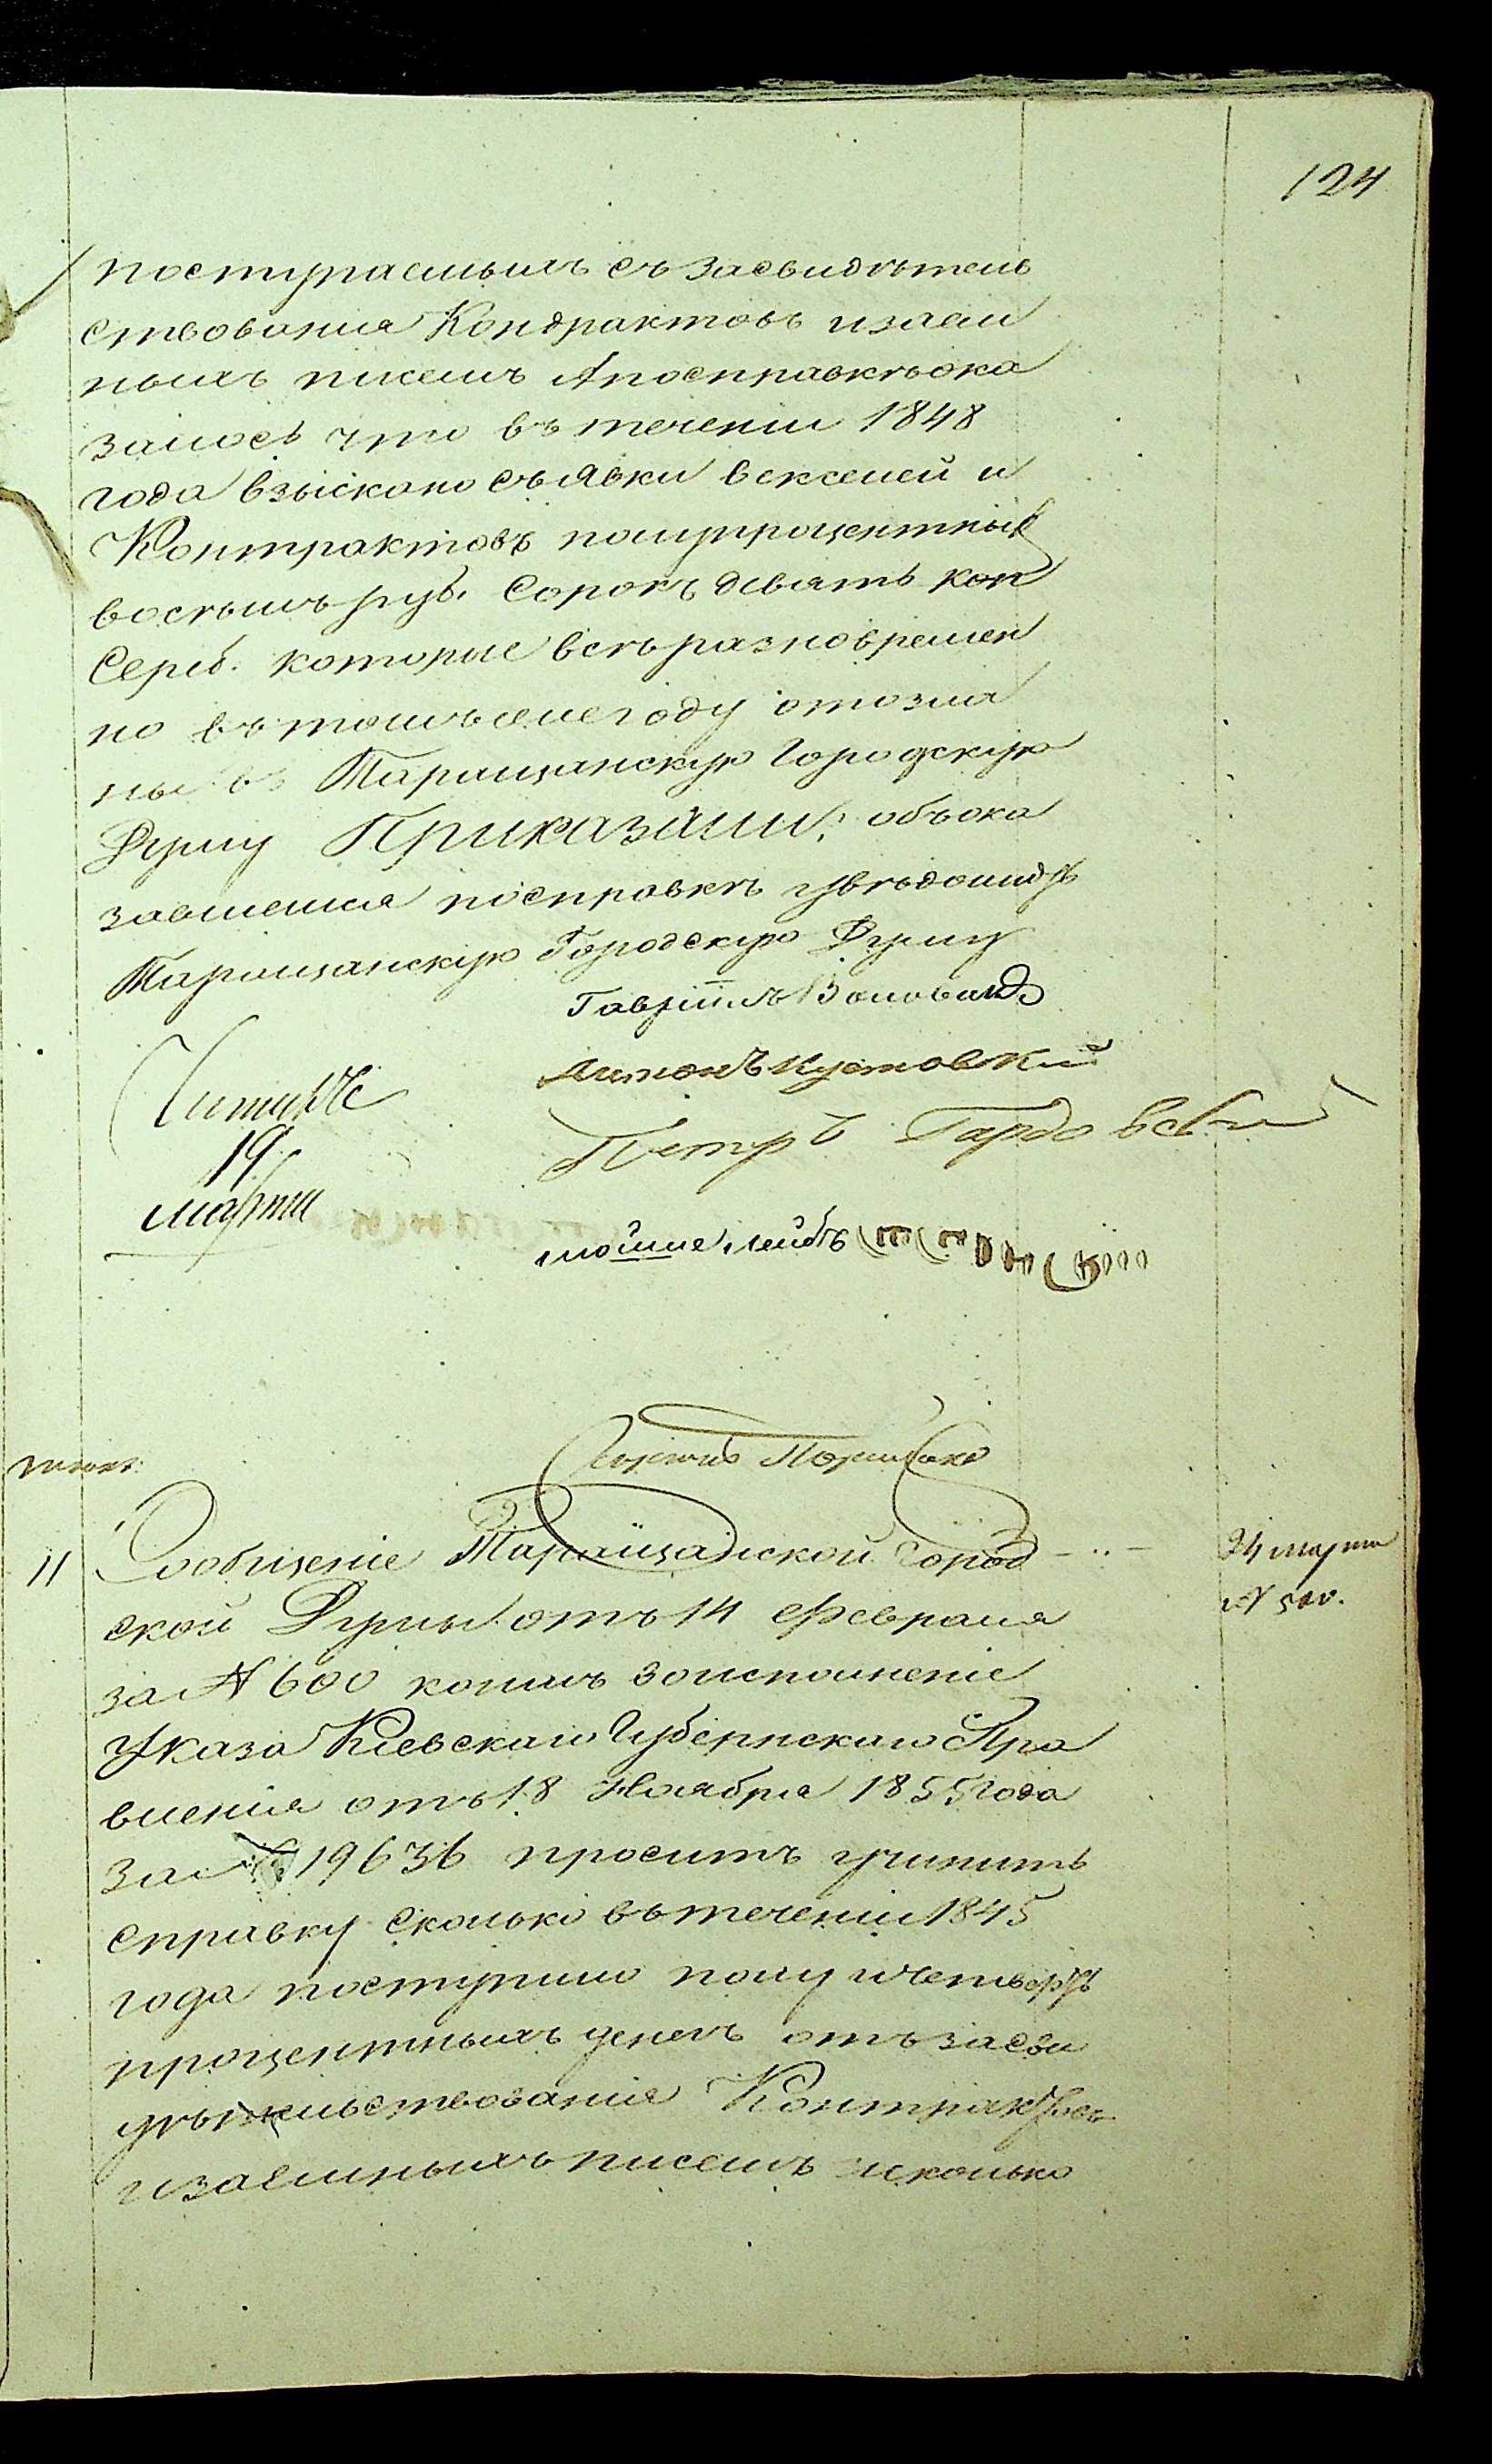 124
поступаемыхъ съ засвидѣтель
ствованія Кондрактовъ изаем
ныхъ писемъ Апосправкѣока
залось что въ теченіи 1848
года взыскано съ Явки векселей и
Контрактовъ полупроцентных
восѣмъ руб. Сорокъ девять коп
Сереб. которые всѣ разновремен
но въ томъ же году отозла
ны въ Таращанскую Городскую
Думу Приказали: объока
завшемся посправкѣ увѣдомить
Таращанскую Городскую Думу
Гавріилъ
Антонъ Кустовскій
Петръ Гардовскій
мошие лейбъ
19
марта
11 Сообщеніе Таращанской город
24 марта
№ 500.
ской Думы отъ 14 Февраля
за № 600 коимъ воисполненіе
Указа Кіевскаго Губернскаго Пра
вленія отъ 18 Ноября 1855 года
за № 19636 проситъ учинить
справку сколько въ теченіи 1845
года поступило полу ичетверть
процентныхъ денегъ отъ засви
дѣтельствованія Контрактовъ
изаемныхъ писемъ исколько